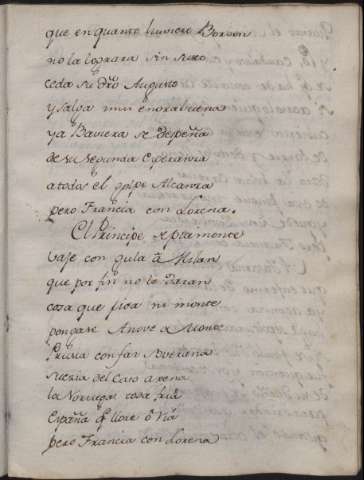 que en quanto huviere Borbon
no la lograra sin susto
ceda su dro Augusto
y salga muy enorabuena
ya Baviera se despeña
de su segunda Esperanza
a todos el golpe Alcanza
pero Francia con Lorena.
El Principe de piamonte
vaje con gula â Milan
que por fin no le daran
cosa que pica ni monte
pongase Anove a Monte
Prusia con fan soverana
suezia del caso agena
la Noruega cosa fria
España q llore ô Ria
pero Francia con Lorena